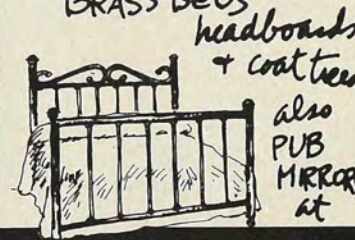 BRASS BEDS
headboards
+ coat trees
also
PUB
MIRROR
at